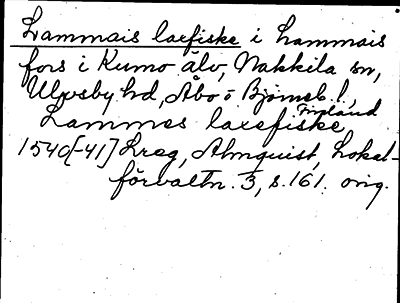 Lammais laxfiske i Lammais
fors i Kumo älv, Nakkila sn,
Ulvsby hd, Åbo o Björneb. l,
Finland
Lammes laxefiske,
1540[-41] Lreg, Almquist, Lokal-
förvaltn. 3, s. 161. orig.